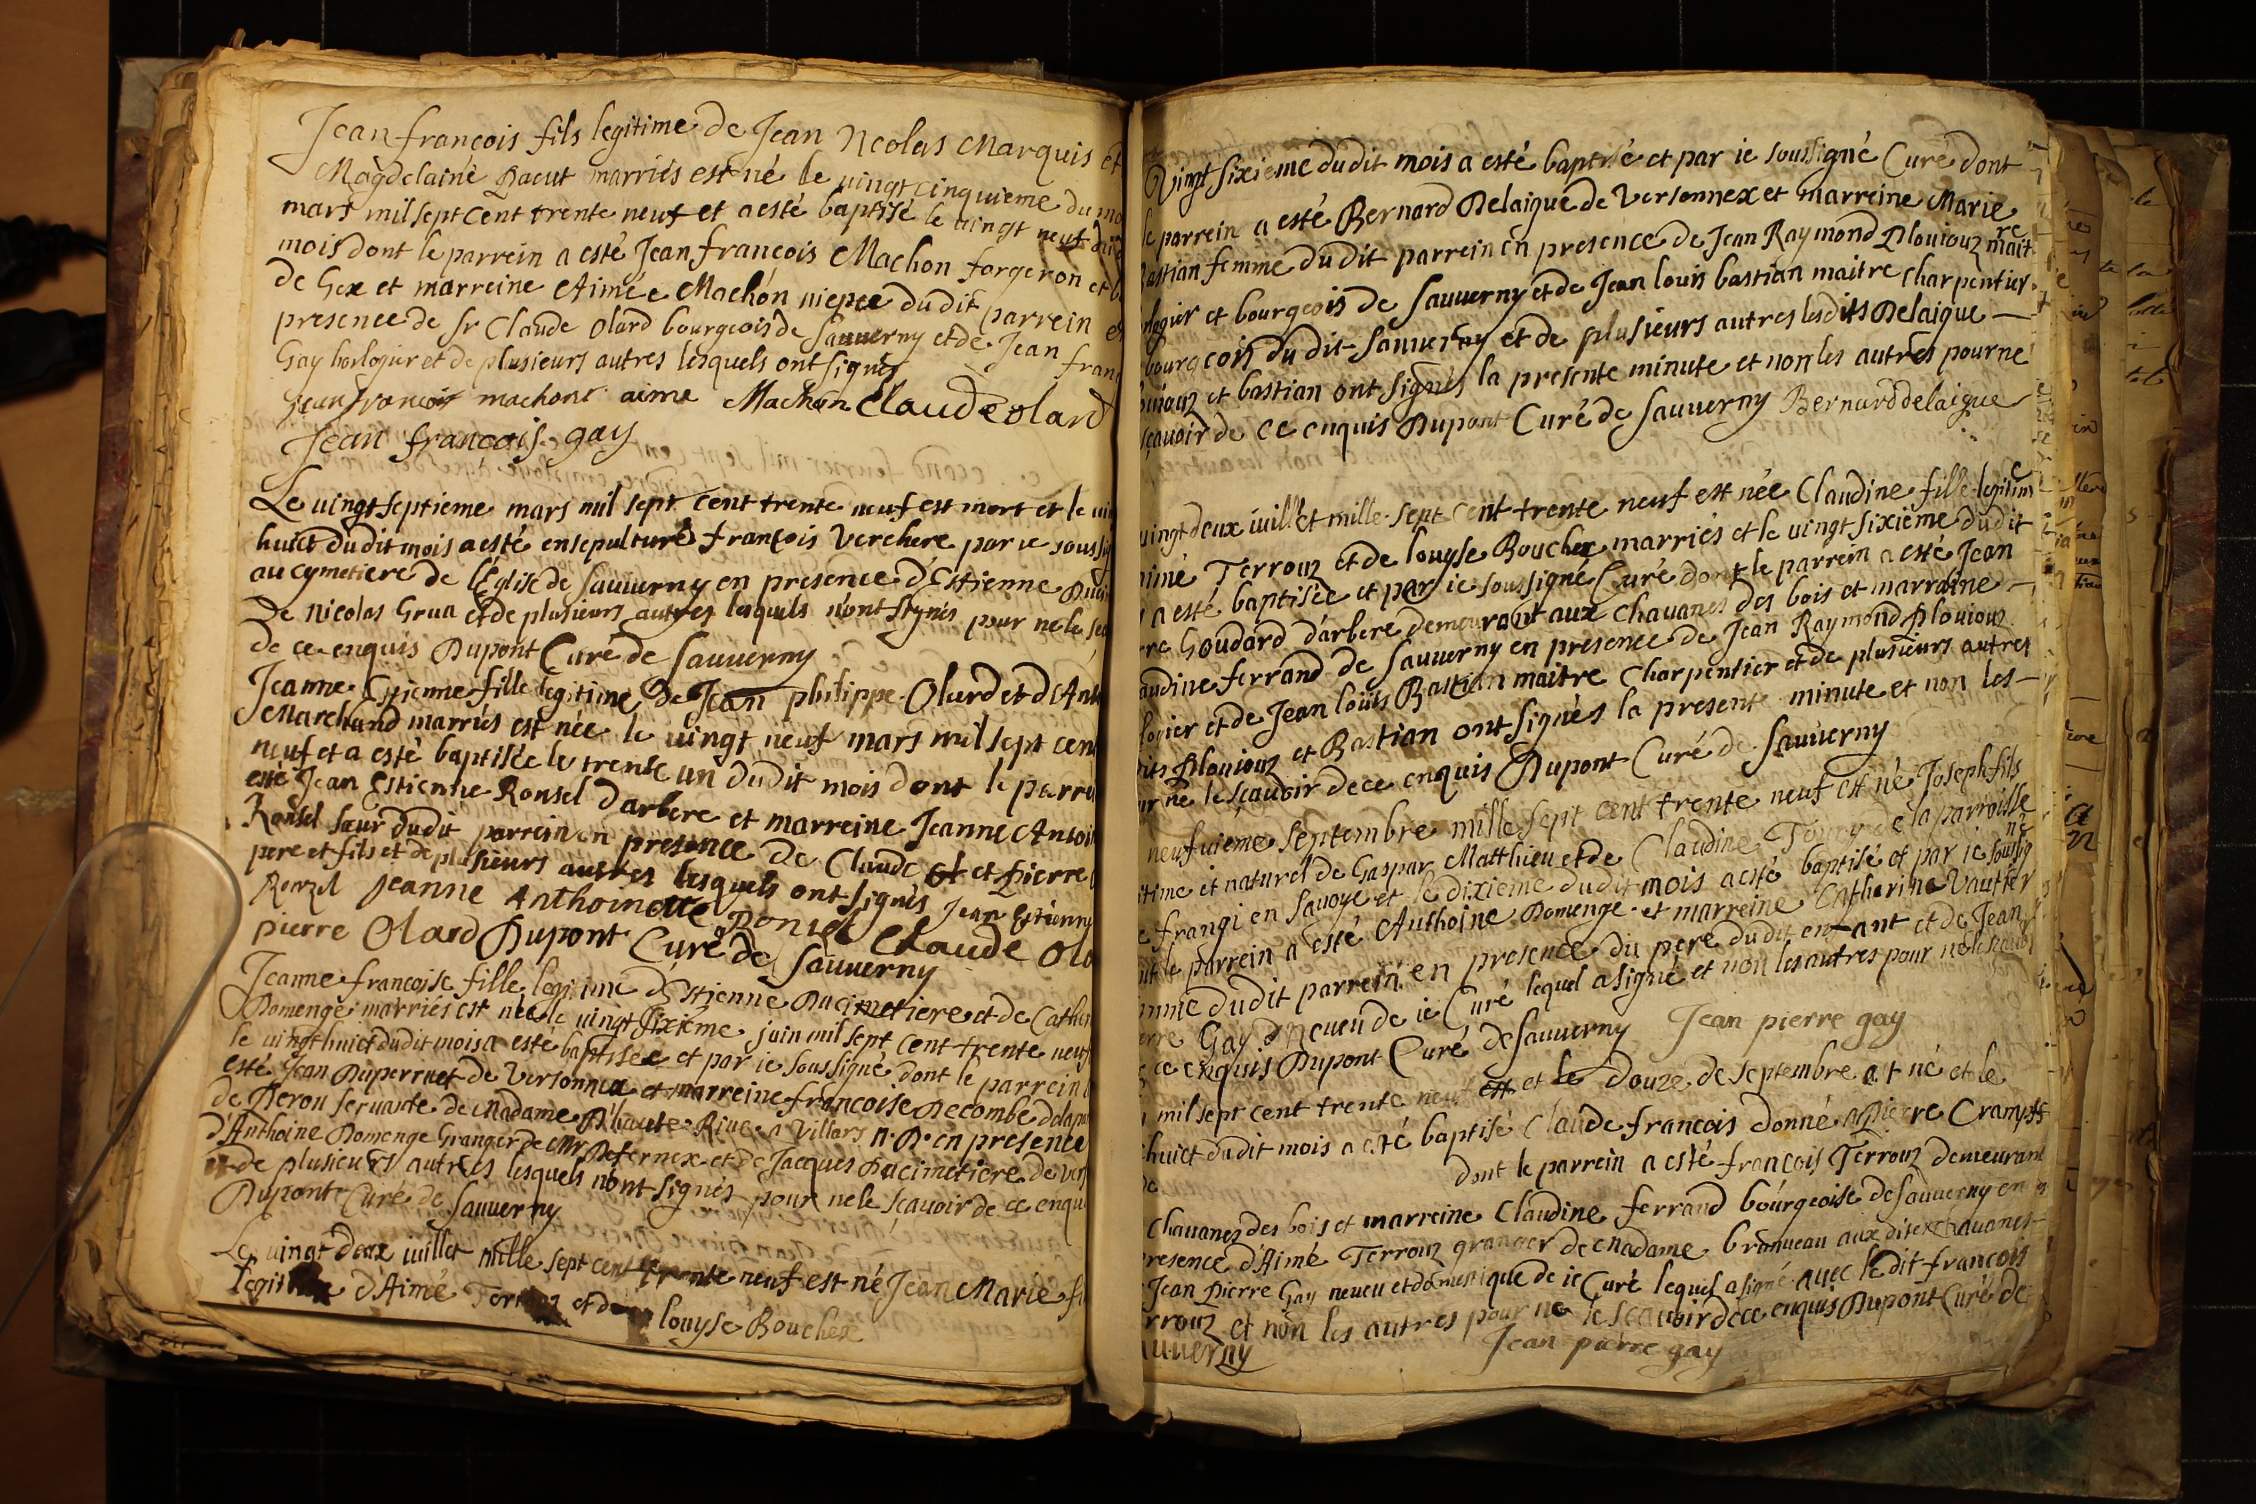 Jean françois fils legitime de Jean Ncolas Marquis et
Magdelaine Dacut marriés est né le vingt cinquieme du mo
mars mil sept cent trente neuf et a esté baptisé le vingt neuf dudi
mois dont le parrein a esté Jean françois Machon forgeron et b
de Gex et marreine Aimée Machon niepce dudit parrein e
presence de Sr Claude Olard bourgeois de Sauverny et de Jean fran
Gay horlogier et de plusieurs autres lesquels ont signés
jean françois machont aime Machon Claude olard
Jean françois gay
Le vingt septieme mars mil sept cent trente neuf est mort et le vin
huict dudit mois a esté ensepulturé françois Verchere par ie soussig
au cymetiere de l'Eglise de Sauverny en presence d'Estienne Duci
De Nicolas Grua et de plusieurs autres lesquels n'ont signés pour ne le sca
de ce enquis Dupont Curé de Sauverny
Jeanne fille legitime De Jean philippe Olard et d'Ant
Marchand marriés est née le vingt neuf mars mil sept cent
neuf et a esté baptisée le trente un dudit mois dont le parre
esté Jean Estienne Ronsel D'arbere et marreine Jeanne Antoi
Ronsel sœur dudit parrein en presence de Claude et Pierre
pere et fils et de plusieurs autres lesquels ont signés Jean Estienne
Ronzel Jeanne Anthoinette Ronsel Claude Ola
pierre Olard Dupont Curé de Sauverny
Jeanne françoise fille legitime d'Estienne Ducimetiere et de Cather
Domenge marriés est née le vingt sixième juin mil sept cent trente neuf
le vingt huict dudit mois a esté baptisée et par ie soussigné dont le parrein
esté Jean Duperruet de Versonnex et marreine françoise Decombe de la par
de Peron servante de Madame D'haute Rive a Villars N. D. en presence
d'Anthoine Domenge Granger de Mr Defernex et de Jacques Ducimetiere de Ver
de plusieurs autres lesquels n'ont signés pour ne le scavoir de ce enqu
Dupont Curé de Sauverny
Le vingt deux iuillet mille sept cent trente neuf est né Jean Marie fi
legitime d'Aimé Terroux et de louyse Bouchex
Vingt sixieme dudit mois a esté baptisé et par ie soussigné Curé dont
le parrein a esté Bernard Delaigue de Versonnex et marreine Marie
Bastian femme dudit parrein en presence de Jean Raymond Plouiouz maitre
rlogier et bourgeois de Sauverny et de Jean louis bastian maitre charpentier
bourgeois dudit Sauverny et de plusieurs autres lesdits Delaigue
ouiouz et bastian ont signés la presente minute et non les autres pour ne
scavoir de ce enquis Dupont Curé de Sauverny Bernard delaigue
vingt deux iuillet mille sept cent trente neuf est née Claudine fille legitime
aimé Terrouz et de louyse Bouchex marriés et le vingt sixieme dudit
a esté baptisée et par ie soussigné Curé dont le parrein a esté Jean
rre Goudard d'arbere demeurant aux chavanes des bois et marraine
audine ferrand de Sauverny en presence de Jean Raymond Plouiouz
logier et de Jean louïs Bastian maitre Charpentier et de plusieurs autres
dits Plouiouz et Bastian ont signés la presente minute et non les
ur ne le scavoir de ce enquis Dupont Curé de Sauverny
neufuieme Septembre mille sept cent trente neuf est né Joseph fils
itime et naturel de Gaspar Matthieu et de Claudine de la parroisse
e frangi en Savoye et le dixieme dudit mois a esté baptisé et par ie soussigné
nt le parrein a esté Anthoine Domenge et marreine Catherine Vautier
mme dudit parrein en presence du pere dudit enfant et de Jean
erre Gay Neveu de ie Curé lequel a signé et non les autres pour ne le scavoir
ce enquis Dupont Curé de Sauverny Jean pierre gay
mil sept cent trente neuf est et le Douze de septembre at né et le
huict dudit mois a esté baptisé Claude françois donné a Pierre
dont le parrein a esté françois Terrouz demeurant
Chavanes des bois et marreine Claudine ferrand bourgeoise de Sauverny en
resence d'Aimé Terrouz granger de Madame Branveau aux dites chavanes
Jean Pierre Gay neveu et domestique de ie Curé lequel a signé avec ledit françois
rrouz et non les autres pour ne le scavoir de ce enquis Dupont Curé de
auverny Jean pierre gay